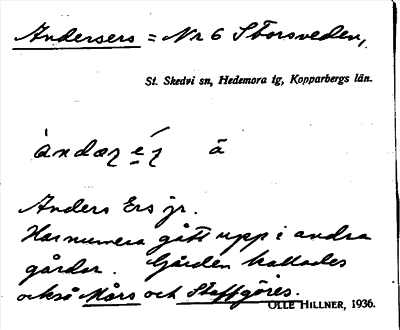 Andersers = Nr 6 Storsveden,
St. Skedvi sn, Hedemora tg, Kopparbergs län.
a
Anders Ers jr.
Har numera gått upp i andra
gårdar. Gården kallades
också Mårs och Staffgöres.
OLLE HILLNER, 1936.